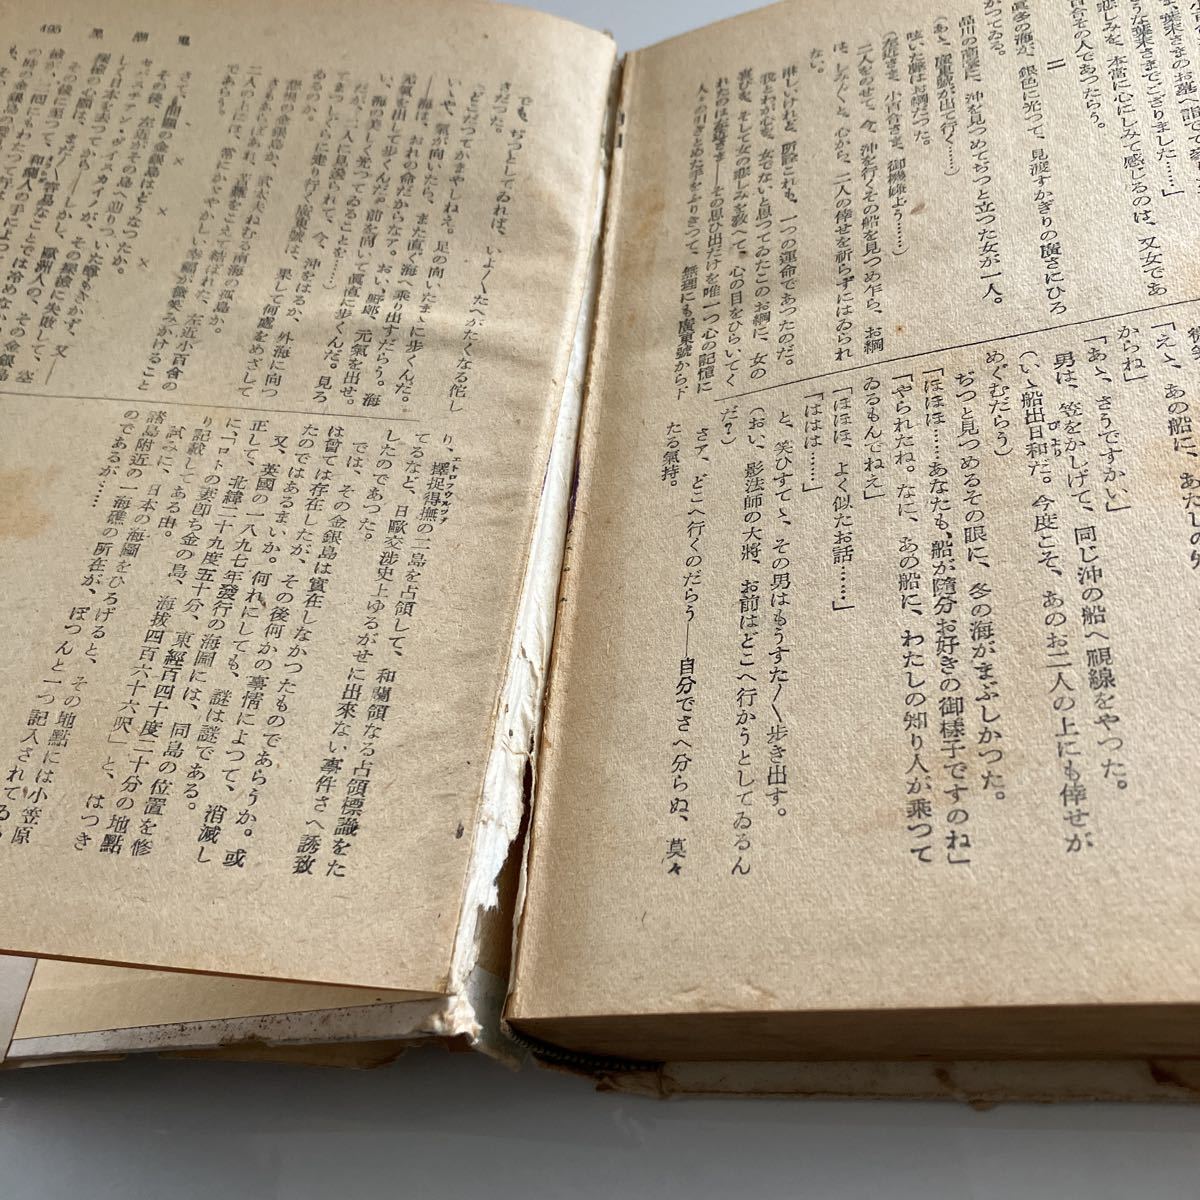 うな葉末さまでございました……」
悲しみを、本當に心にしみて感じるのは、又女であ
百合その人であつたらう。
二
眞冬の海が、銀色に光つて、見渡すかぎりの廣さにひろ
がつてゐる。
品川の商家に、沖を見つめてぢつと立つた女が一人。
(あゝ、廣東號が出て行く……)
呟いた聲はお綱だつた。
(左近さま、小百合さま、御機嫌よう……)
二人をのせて、今、沖を行くその船を見つめ乍ら、お綱
は、しみ／″＼と、心から、二人の倖せを祈らずにはゐられ
ない。
淋しいけれど、所詮これも、一つの運命であつたのだ。
我とわが心を、女でないと思つてゐたこのお綱に、女の
喜びを、そして女の悲しみを教へて、心の目をひらいてく
れたのは左近さま――その思ひ出だけを唯一つ心の記憶に
人々の引きとめた手をふりきつて、無理にも廣東號から下
「えゝ、あの船に、あたしの
からね」
「あゝ、さうですかい」
男は、笠をかしげて、同じ沖の船へ視線をやつた。
(いゝ船出日和だ。今度こそ、あのお二人の上にも倖せが
めぐむだらう)
ぢつと見つめるその眼に、冬の海がまぶしかつた。
「ほほほ……あなたも、船が隨分お好きの御樣子ですのね」
「やられたね。なに、あの船に、わたしの知り人が乘つて
ゐるもんでねえ」
「ほほほ、よく似たお話……」
「ははは……」
と、笑ひすてゝ、その男はもうすた／＼歩き出す。
(おい、影法師の大將、お前はどこへ行かうとしてゐるん
だ?)
さァ、どこへ行くのだらう――自分でさへ分らぬ、莫々
たる氣持。
鬼潮黑
495
でも、ぢつとしてゐれば、いよ／＼たへがたくなる佗し
さだつた。
(どこだつてかまやしねえ。足の向いたまゝに歩くんだ。
いゝや、氣が向いたら、また直ぐ海へ乘り出すだらう。海
――海は、おれの命だからなァ。おい、野郎、元氣を出せ。
勇氣を出して歩くんだ。前を向いて眞直に歩くんだ。見ろ
い、海の美しく光つてゐることを……)
だが、二人に見送られて、今、沖をはるか、外海に向つ
てまつしぐらに走り行く廣東號は、果して何處をめざして
ゐるのか。
悲願の金銀島か、武太夫ねむる南海の孤島か。
さもあらばあれ、苦難をこえて結ばれた、左近小百合の
二人の上には、常にかゞやかしい幸福が微笑みかけること
であらう。
× × ×
さて、問題の金銀島はどうなつたか。
その後、左近がその島へ辿りついた噂もきかず、又――
セバスチアン・ヴイスカイノが、その探檢に失敗して、
して日本を去つてから――しかし、歐洲人の、その金銀島
り、擇捉得撫の二島を占領して、和蘭領なる占領標識をた
エトロフウルツプ
てるなど、日歐交渉史上ゆるがせに出來ない事件さへ誘致
したのであつた。
では、その金銀島は實在しなかつたものであらうか。或
は曾ては存在したが、その後何かの事情によつて、消滅し
たのではあるまいか。何れにしても、謎は謎である。
又、英國の一八九七年發行の海圖には、同島の位置を修
正して、北緯二十九度五十分、東經百四十度二十分の地點
に、「ロトの妻卽ち金の島、海拔四百六十六呎」と、はつき
り記載してある由。
試みに、日本の海圖をひろげると、その地點には小笠原
諸島附近の一海礁の所在が、ぽつんと一つ記入されてゐる
のであるが……